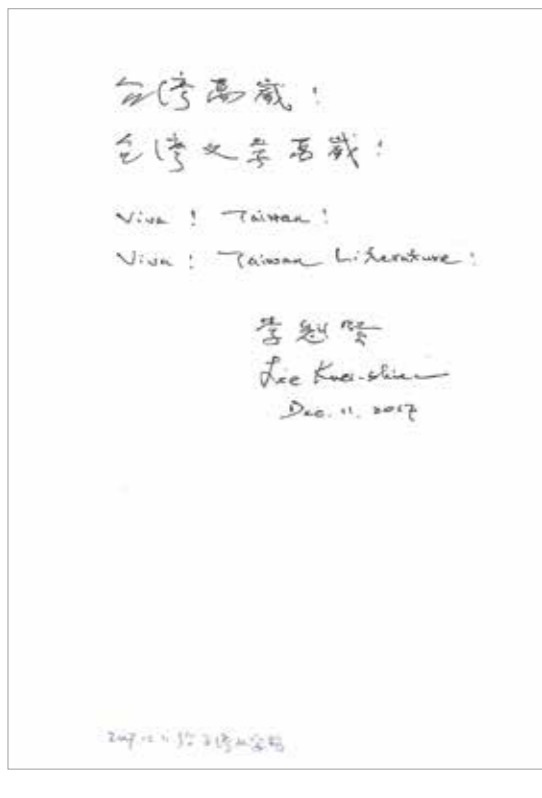 台湾萬歲!
台湾文学萬歲!
Viva! Taiwan!
Viva! Taiwan Literature!
李魁賢
Lee Kuei-shien
Dec. 11. 2017
2017.12.11 於台湾文学館